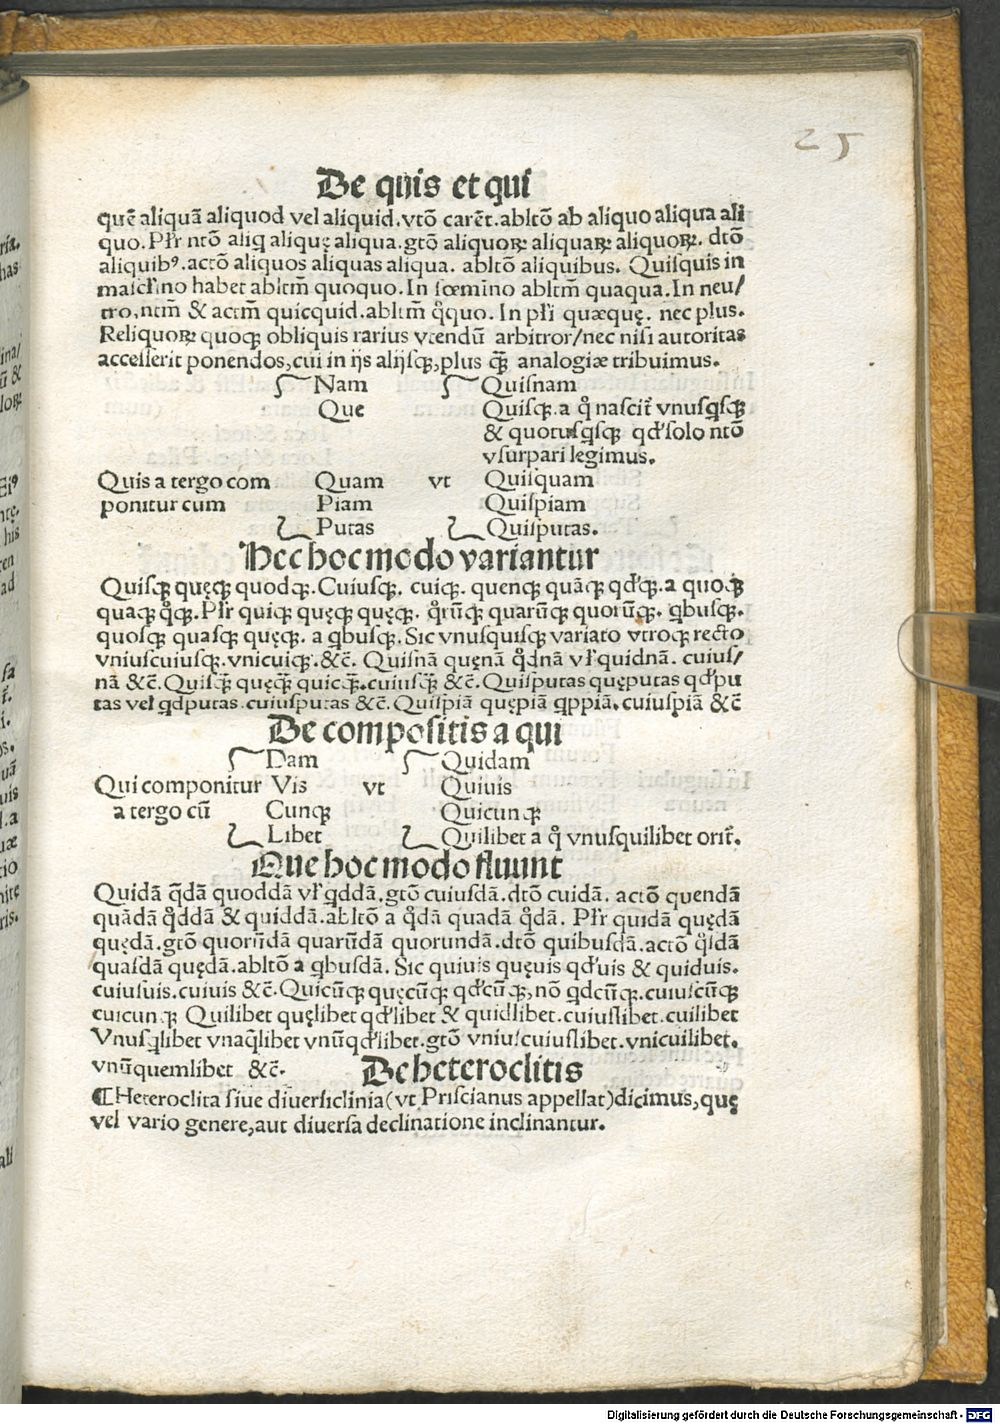 25
De quis et qui
quē aliquā aliquod vel aliquid. vtō carēt. abltō ab aliquo aliqua ali
quo. Plr̄ ntō aliq aliquę aliqua. gtō aliquoꝝ aliquaꝝ aliquoꝝ. dtō
aliquibꝰ. actō aliquos aliquas aliqua. abltō aliquibus. Quiſquis in
maſcl'ino habet abltm̄ quoquo. In fœmino abltm̄ quaqua. In neu/
tro, ntm̄ & actm̄ quicquid. abltm̄ q̊quo. In pl'i quæquę. nec plus.
Reliquoꝝ quoqꝫ obliquis rarius vtendū arbitror/nec niſi autoritas
acceſſerit ponendos, cui in ijs alijſqꝫ, plus qꝫ̄ analogiæ tribuimus.
Nam Quiſnam
Que Quiſqꝫ. a q̊ naſcit̄ vnuſqſqꝫ
& quotuſqſqꝫ qd' ſolo ntō
vſurpari legimus.
Quis a tergo com Quam vt Quiſquam
ponitur cum Piam Quiſpiam
Putas Quiſputas.
Hec hoc modo variantur
Quiſqꝫ quęqꝫ quodqꝫ. Cuiuſqꝫ. cuiqꝫ. quenqꝫ quāqꝫ qd'qꝫ. a quoqꝫ
quaqꝫ q̊qꝫ. Plr̄ quiqꝫ quęqꝫ quęqꝫ. q̊rūqꝫ quarūqꝫ quorūqꝫ. qbuſqꝫ.
quoſqꝫ quaſqꝫ quęqꝫ. a qbuſqꝫ. Sic vnuſquiſqꝫ variato vtroqꝫ recto
vniuſcuiuſqꝫ. vnicuiqꝫ. &c̄. Quiſnā quęnā q̊dnā vl' quidnā. cuiuſ/
nā &c̄. Quiſqꝫ̄ quęqꝫ̄ quicqꝫ̄. cuiuſqꝫ̄ &c̄. Quiſputas quęputas qd'pu
tas vel qdputas. cuiuſputas &c̄. Quiſpiā quępiā qppiā. cuiuſpiā &c̄
De compositis a qui
Dam Quidam
Qui componitur Vis vt Quiuis
a tergo cū Cunqꝫ Quicunqꝫ
Libet Quilibet a q̊ vnuſquilibet orit̄.
Que hoc modo fluunt
Quidā q̄dā quoddā vl' qddā. gtō cuiuſdā. dtō cuidā. actō quendā
quādā q̊ddā & quiddā. abltō a q̊dā quadā q̊dā. Plr̄ quidā quędā
quędā. gtō quorūdā quarūdā quorundā. dtō quibuſdā. actō q̊ſdā
quaſdā quędā. abltō a qbuſdā. Sic quiuis quęuis qd'uis & quiduis.
cuiuſuis. cuiuis &c̄. Quicūqꝫ quęcūqꝫ qd'cūqꝫ, nō qdcūqꝫ. cuiuſcūqꝫ
cuicunqꝫ Quilibet quęlibet qd'libet & quidlibet. cuiuſlibet. cuilibet
Vnuſqlibet vnaq̄libet vnūqd'libet. gtō vniuſcuiuſlibet. vnicuilibet.
vnūquemlibet &c̄. De heteroclitis
¶ Heteroclita ſiue diuerſiclinia (vt Priſcianus appellat) dicimus, quę
vel vario genere, aut diuerſa declinatione inclinantur.
Digitalisierung gefördert durch die Deutsche Forschungsgemeinschaft - DFG